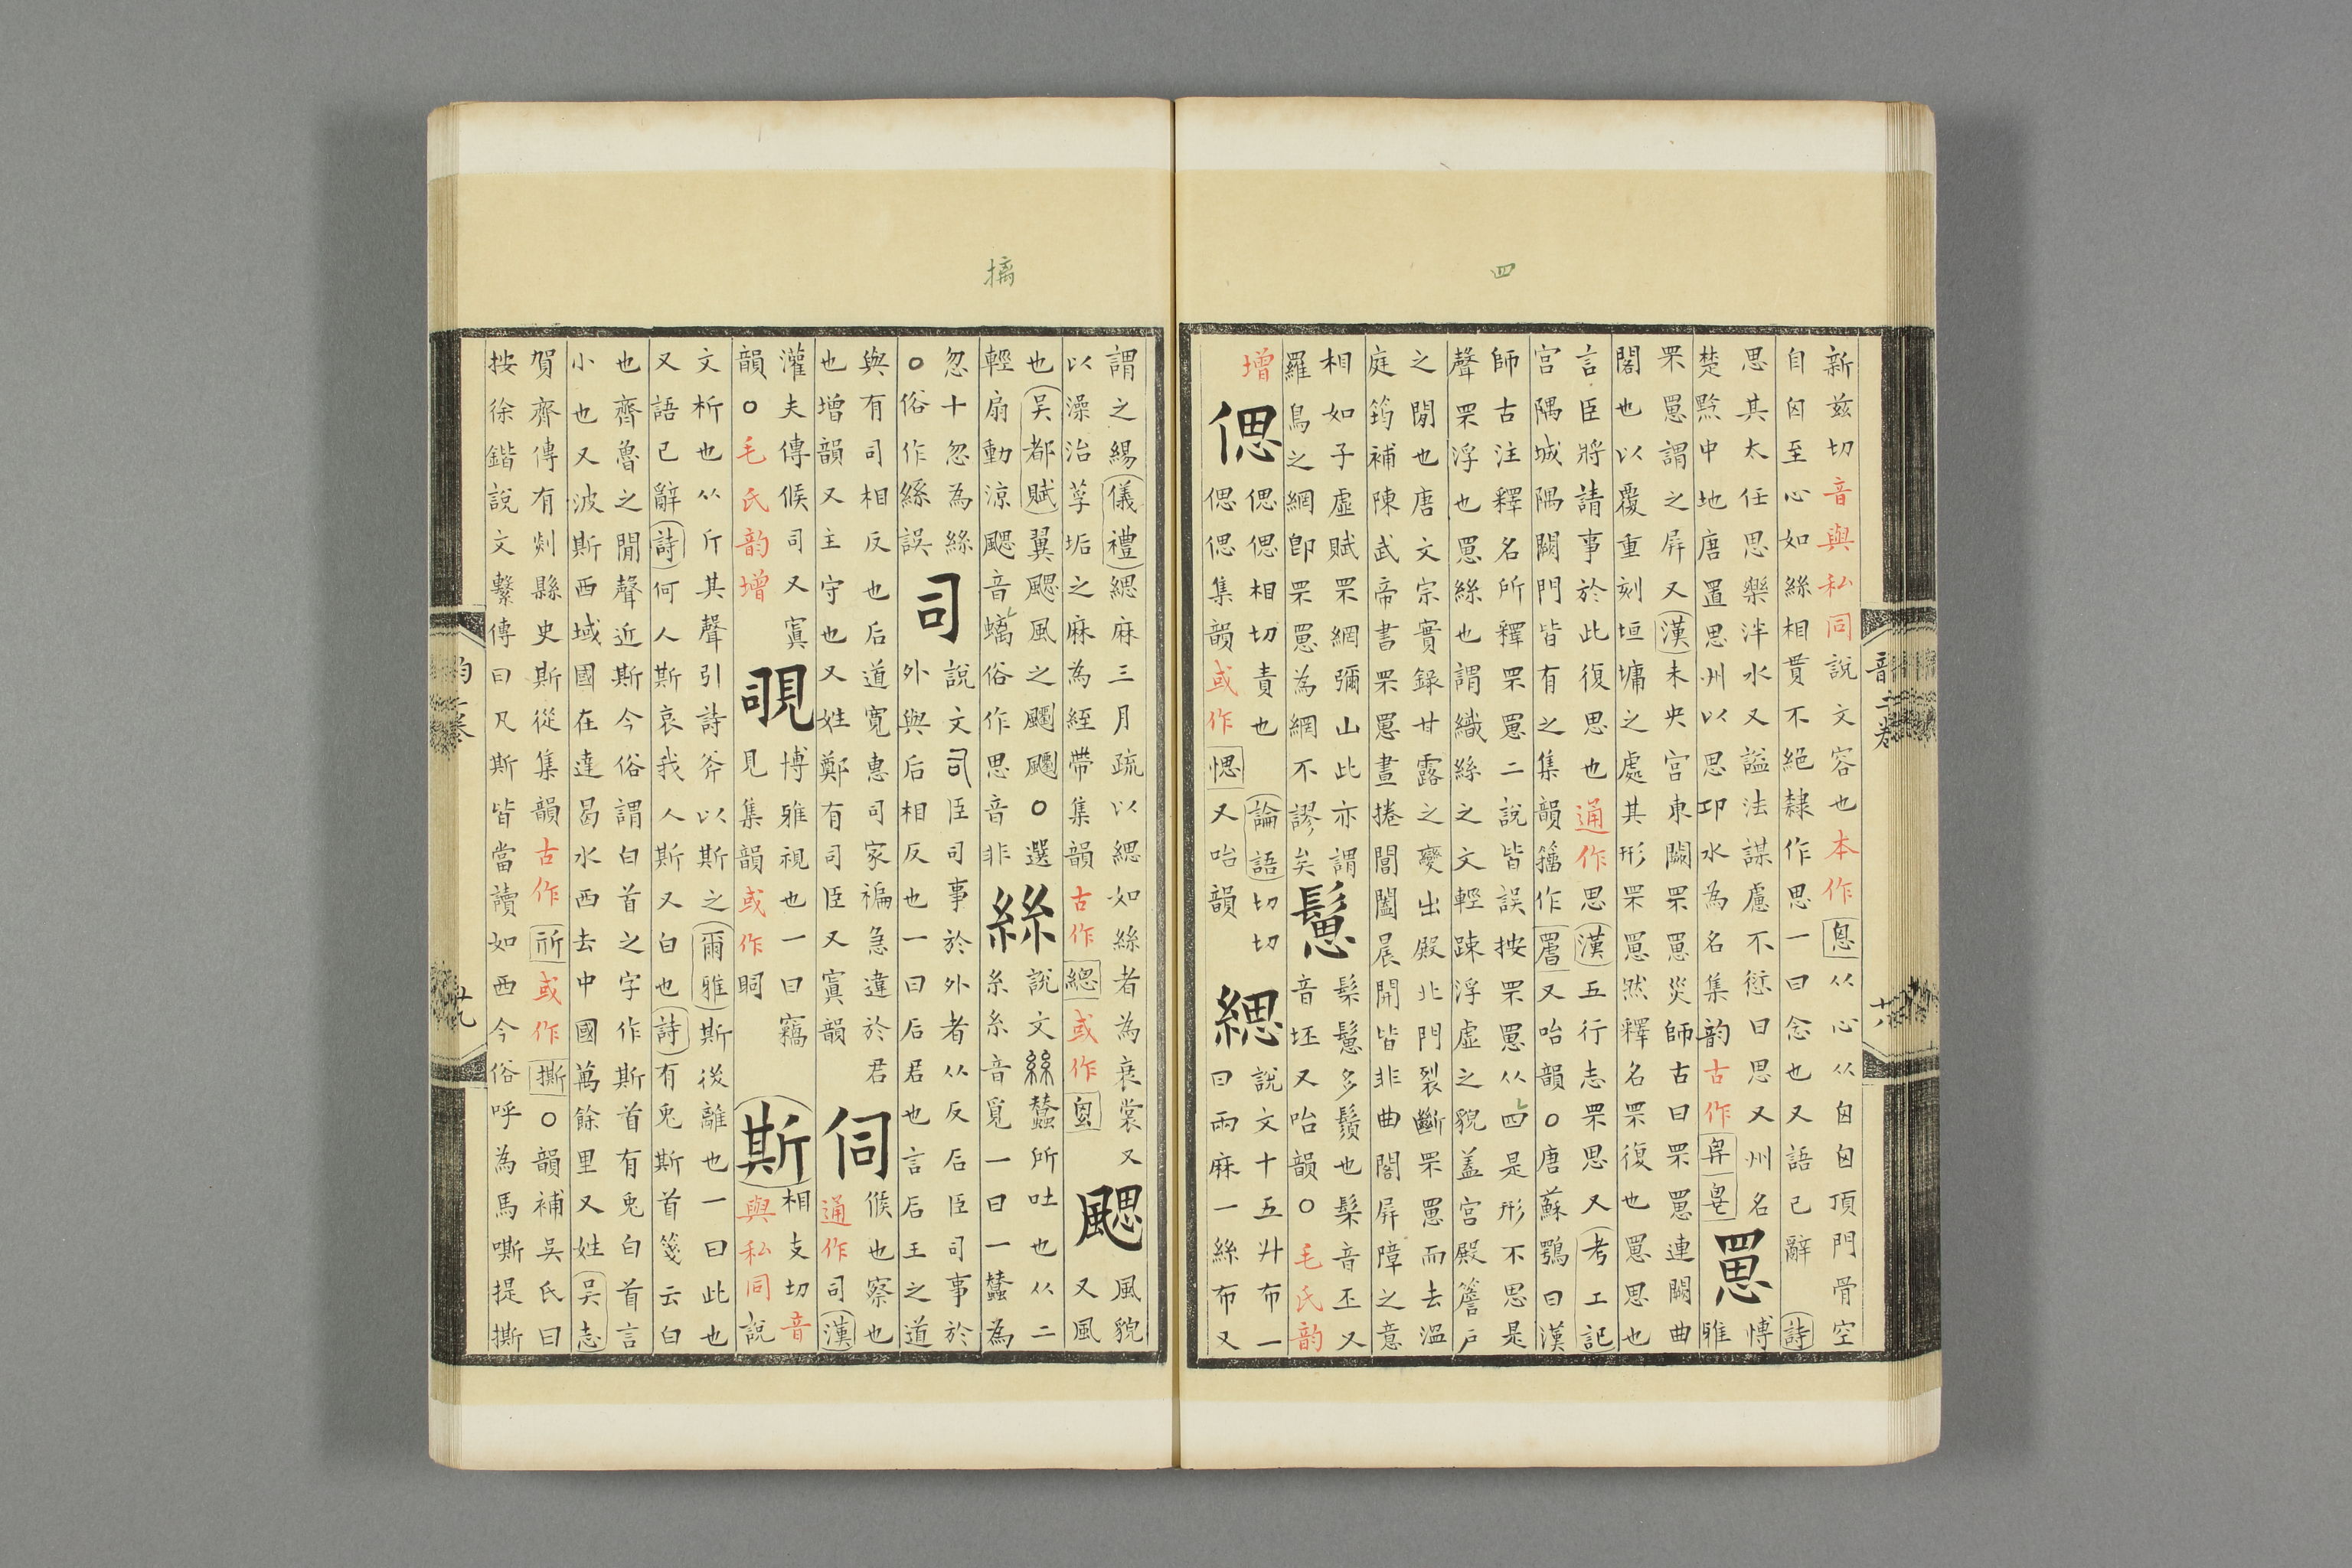 四
新茲切音與私同說文容也本作恖从心从囟囟頂門骨空
自囟至心如絲相貫不絕隸作思一曰念也又語已辭詩
思其太任思樂泮水又謚法謀慮不愆曰思又州名
楚黔中地唐置思州以思邛水為名集韵古作𢍰𢍰罳博雅
罘罳謂之屏又漢未央宮東闕罘罳災師古曰罘罳連闕曲
閣也以覆重刻垣墉之處其形罘罳然釋名罘復也罳思也
言臣將請事於此復思也通作思漢五行志罘思又考工記
宮隅城隅隅闕門皆有之集韻籒作罯又咍韻○唐蘇鶚曰漢
師古注釋名所釋罘罳二說皆誤按罘罳从四是形不思是
聲罘浮也罳絲也謂織絲之文輕疎浮虛之貌蓋宮殿簷戶
之閒也唐文宗實錄甘露之變出殿北門裂斷罘罳而去溫
庭筠補陳武帝書罘罳晝捲閶闔晨開皆非曲閣屏障之意
相如子虛賦罘網彌山此亦謂
羅鳥之網卽罘罳為網不謬矣鬆髤鬆多鬚也髤音丕又
音坯又咍韻○毛氏韵
增偲偲偲相切責也論語切切
偲偲集韻或作愢又咍韻緦說文十五升布一
曰兩麻一絲布又
摛
謂之緆儀禮緦麻三月疏以緦如絲者為衰裳又
以澡治莩垢之麻為絰帶集韻古作緫或作𢍰颸風貌
又風
也吳都賦翼颸風之䬙䬙○選
輕扇動涼颸音蠨俗作思音非絲說文絲蠶所吐也从二
糸糸音覓一曰一蠶為
忽十忽為絲
○俗作絲誤司說文司臣司事於外者从反后臣司事於
外與后相反也一曰后君也言后王之道
與有司相反也后道寬惠司家褊急違於君
也增韻又主守也又姓鄭有司臣又寘韻伺候也察也
通作司漢
灌夫傳候司又寘
韻○毛氏韵增覗博雅視也一曰竊
見集韻或作眮斯相支切音
與私同說
文析也从斤其聲引詩斧以斯之爾雅斯後離也一曰此也
又語已辭詩何人斯哀我人斯又白也詩有兎斯首箋云白
也齊魯之閒聲近斯今俗謂白首之字作斯首有兎白首言
小也又波斯西域國在達曷水西去中國萬餘里又姓吳志
賀齊傳有剡縣史斯從集韻古作㪿或作撕○韻補吳氏曰
按徐鍇說文繫傳曰凡斯皆當讀如西今俗呼為馬嘶提撕